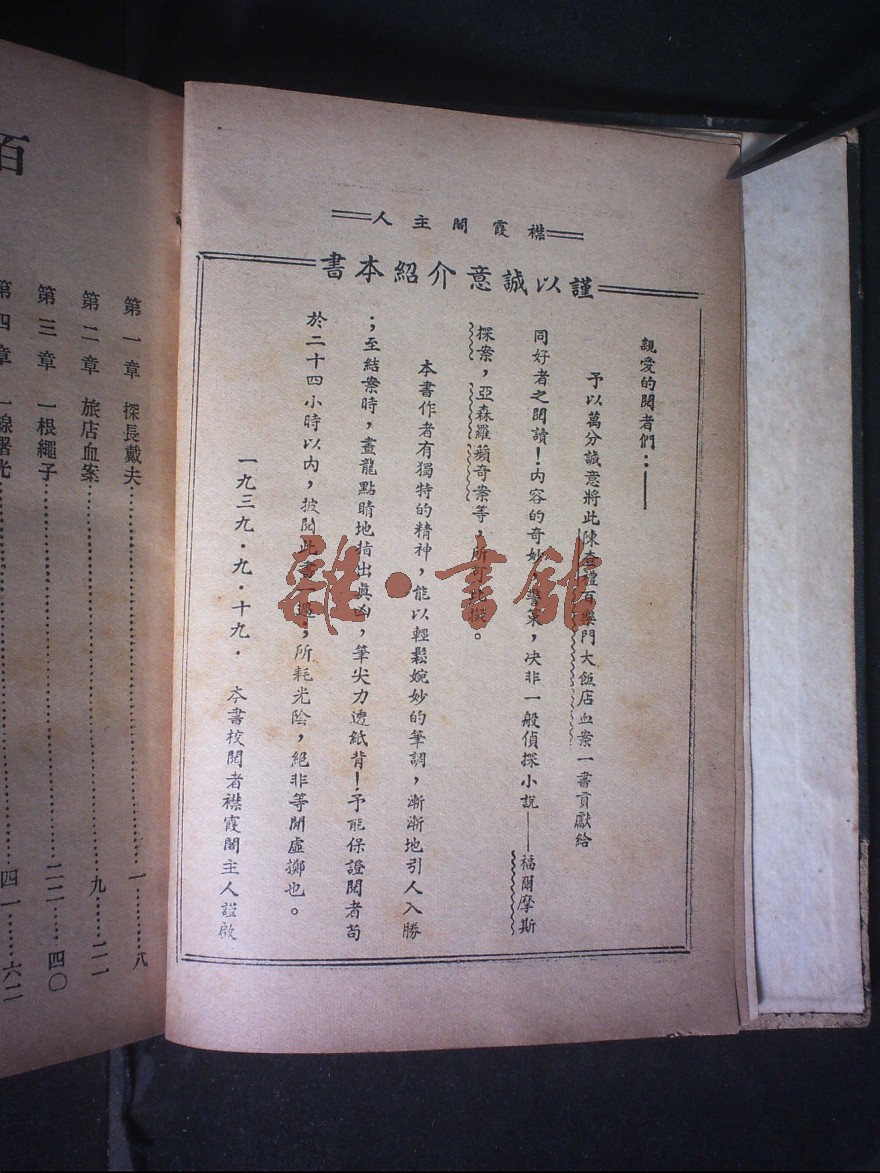 襟霞閣主人
謹以誠意介紹本書
親愛的閱者們：——
予以萬分誠意將此陳查禮百樂門大飯店血案一書貢獻給
同好者之閱讀！內容的奇妙，警策，决非一般偵探小說——福爾摩斯
探案，亞森羅蘋奇案等，所可比擬。
本書作者有獨特的精神，能以輕鬆婉妙的筆調，漸漸地引人入勝
；至結案時，畫龍點睛地指出眞凶，筆尖力透紙背！予能保證閱者苟
於二十四小時以內，披閱此書一過；所耗光陰，絕非等閒虛擲也。
一九三九·九·十九· 本書校閱者襟霞閣主人謹啟
百
第一章 探長戴夫……一……八
第二章 旅店血案……九……二一
第三章 一根繩子……二二……四〇
第四章 一線曙光……四一……六二
雜·書館